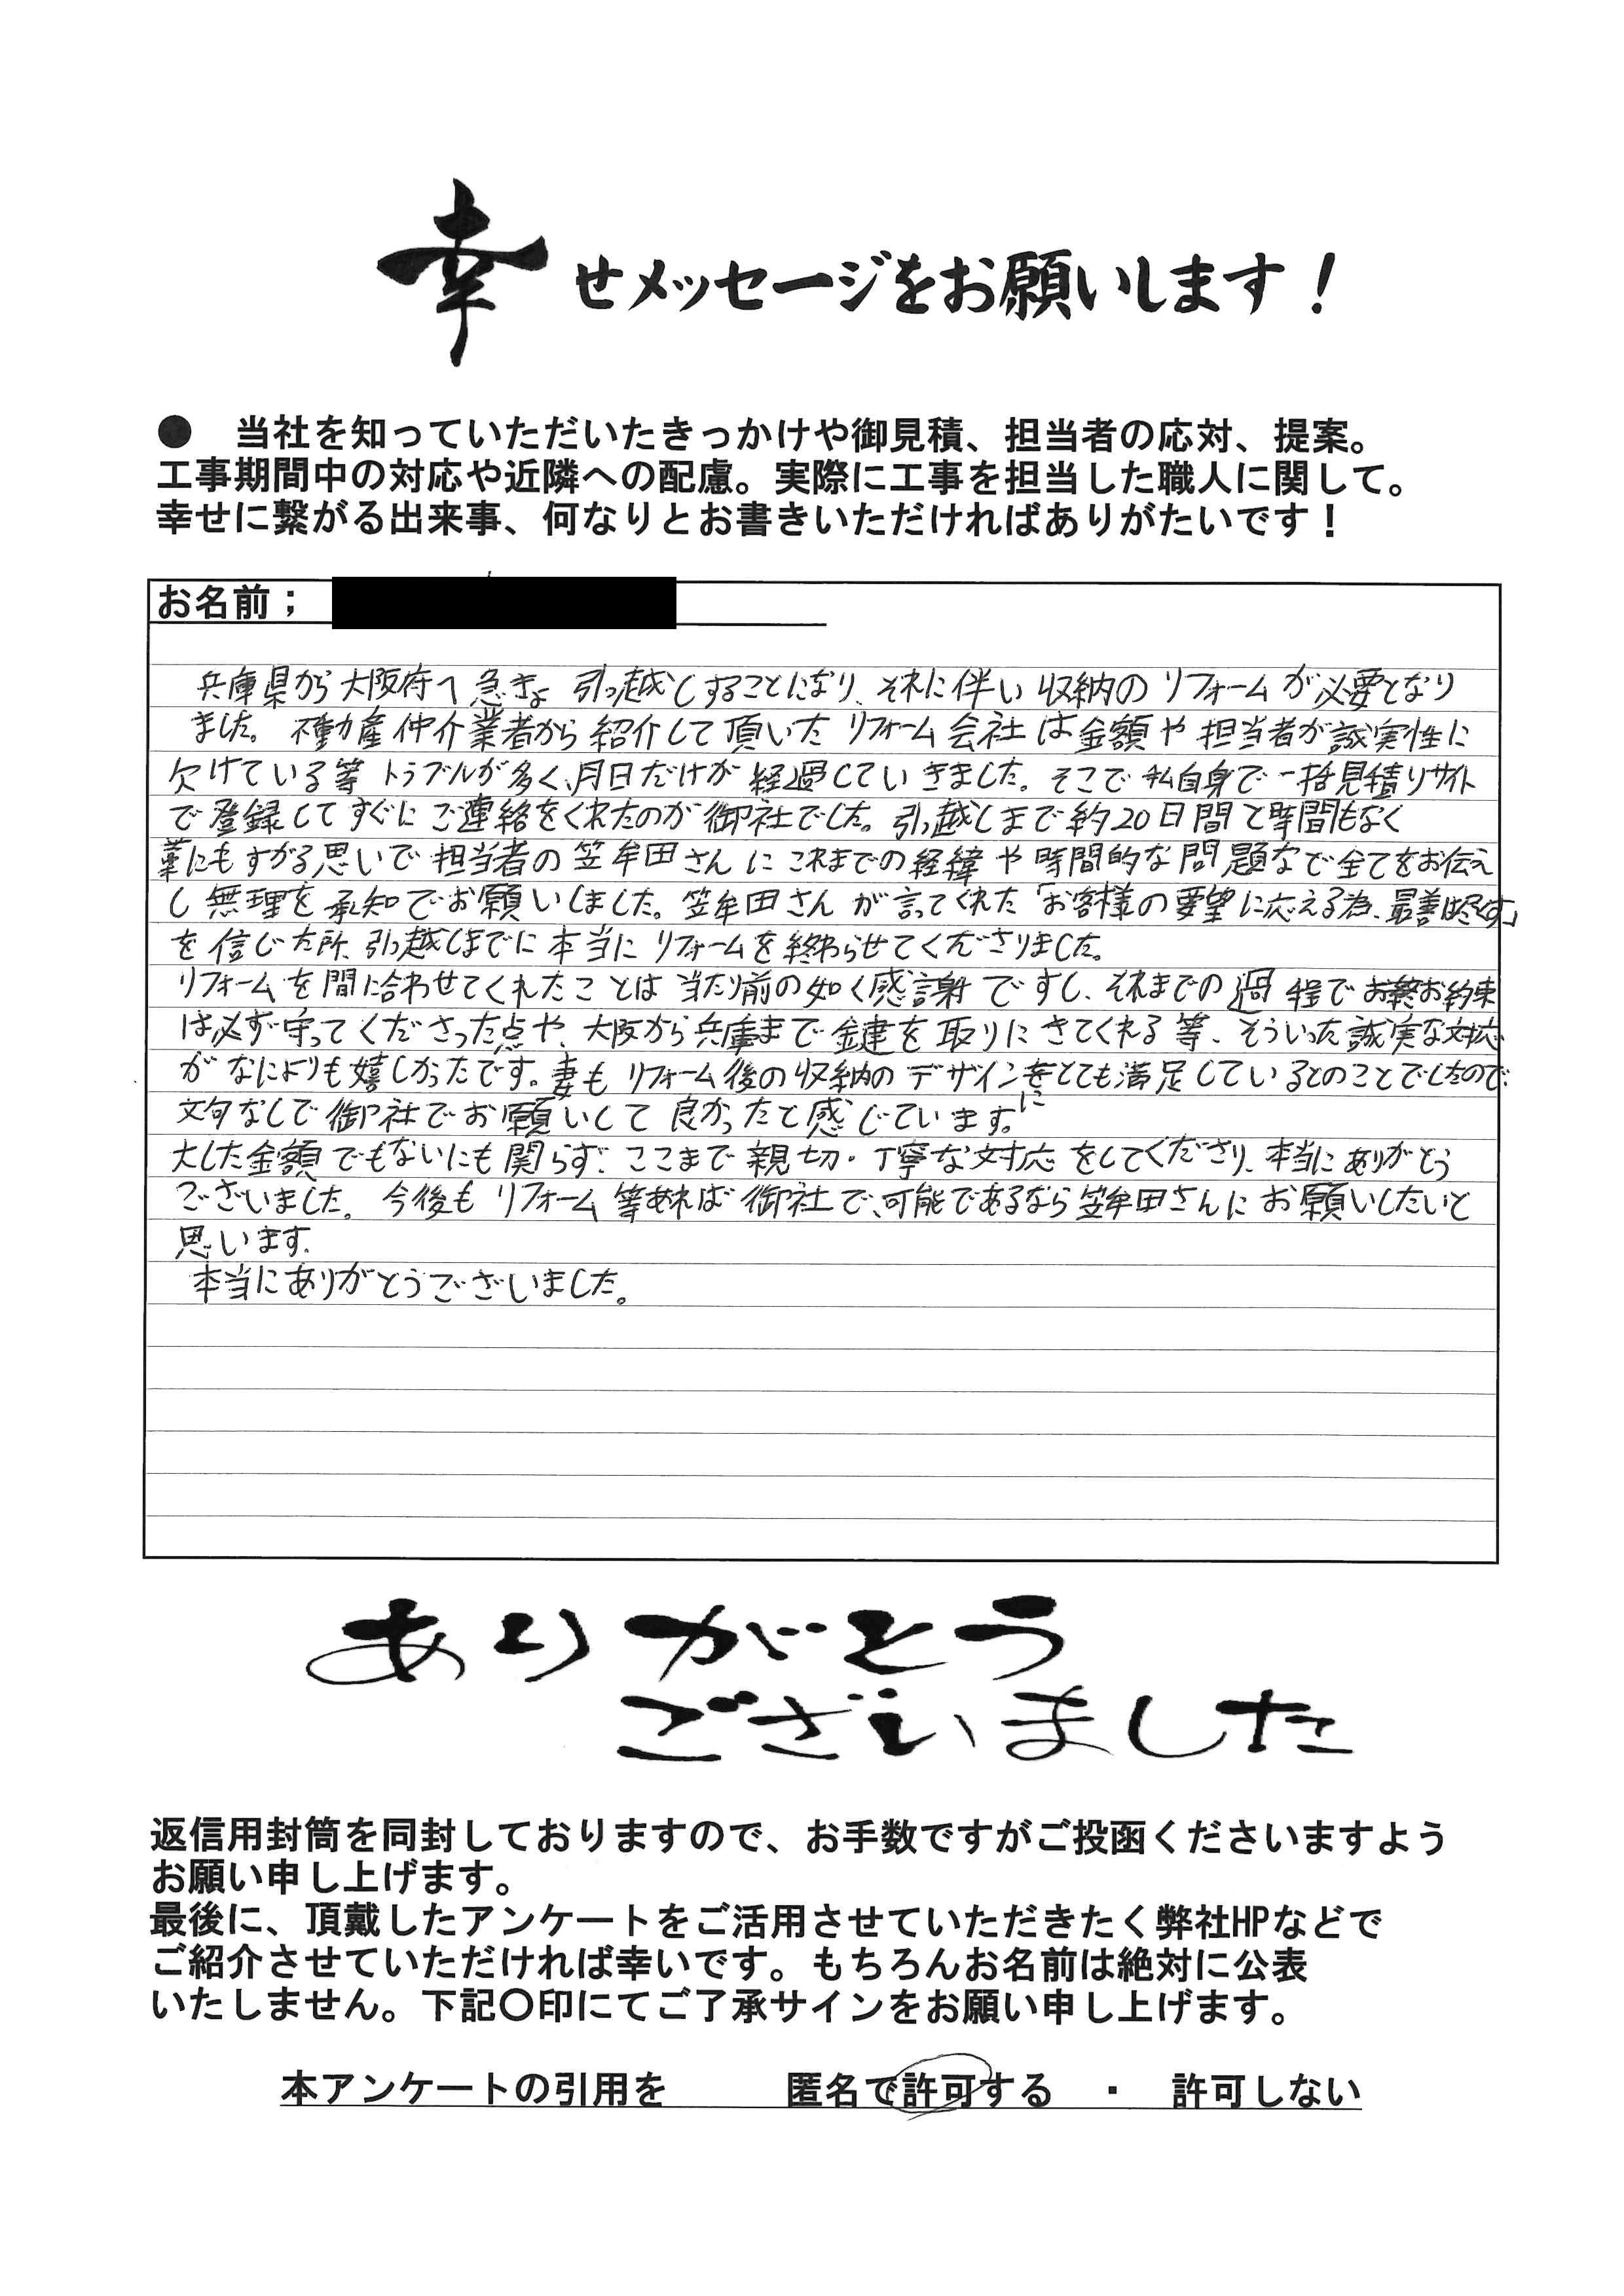 幸せメッセージをお願いします！
●　当社を知っていただいたきっかけや御見積、担当者の応対、提案。
工事期間中の対応や近隣への配慮。実際に工事を担当した職人に関して。
幸せに繋がる出来事、何なりとお書きいただければありがたいです！
お名前；
兵庫県から大阪府へ急きょ引っ越しすることになり、それに伴い収納のリフォームが必要となり
ました。不動産仲介業者から紹介して頂いたリフォーム会社は金額や担当者が誠実性に
欠けている等トラブルが多く、月日だけが経過していきました。そこで私自身で一括見積りサイト
で登録してすぐにご連絡をくれたのが御社でした。引っ越しまで約20日間と時間もなく
藁にもすがる思いで担当者の笠牟田さんにこれまでの経緯や時間的な問題など全てをお伝え
し無理を承知でお願いしました。笠牟田さんが言ってくれた「お客様の要望に応える為、最善は尽くす」
を信じた所、引っ越しまでに本当にリフォームを終わらせてくださりました。
リフォームを間に合わせてくれたことは当たり前の如く感謝ですし、それまでの過程でお約束
は必ず守ってくださった点や、大阪から兵庫まで鍵を取りにきてくれる等、そういった誠実な対応
がなによりも嬉しかったです。妻もリフォーム後の収納のデザインにとても満足しているとのことでしたので、
文句なしで御社でお願いして良かったと感じています。
大した金額でもないにも関らず、ここまで親切・丁寧な対応をしてくださり、本当にありがとう
ございました。今後もリフォーム等あれば御社で、可能であるなら笠牟田さんにお願いしたいと
思います。
本当にありがとうございました。
ありがとう
ございました
返信用封筒を同封しておりますので、お手数ですがご投函くださいますよう
お願い申し上げます。
最後に、頂戴したアンケートをご活用させていただきたく弊社HPなどで
ご紹介させていただければ幸いです。もちろんお名前は絶対に公表
いたしません。下記〇印にてご了承サインをお願い申し上げます。
本アンケートの引用を　　　匿名で許可する　・　許可しない